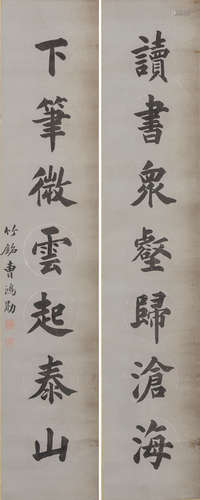 讀書眾壑歸滄海
下筆微雲起泰山
竹銘曹鴻勛